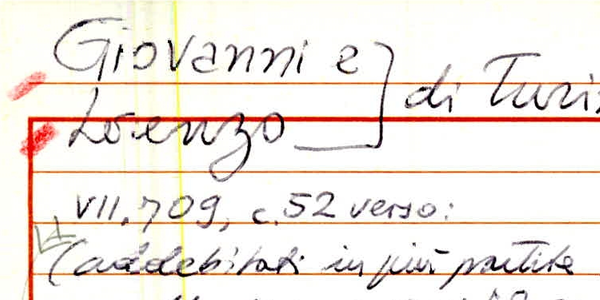 Giovanni e
Lorenzo } di Turis
VII, 709, c. 52 verso:
(addebitati in più partite